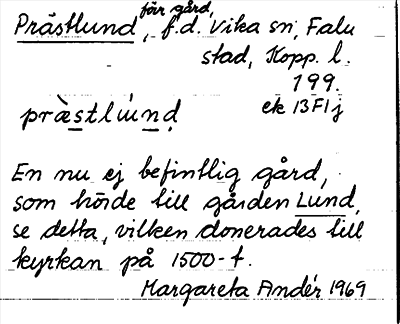 för gård,
Prästlund, f.d. Vika sn, Falu
stad, Kopp. l.
199.
ek 13F1j
præ̀stlúnḍ
En nu ej befintlig gård,
som hörde till gården Lund,
se detta, vilken donerades till
kyrkan på 1500-t.
Margareta Andér 1969